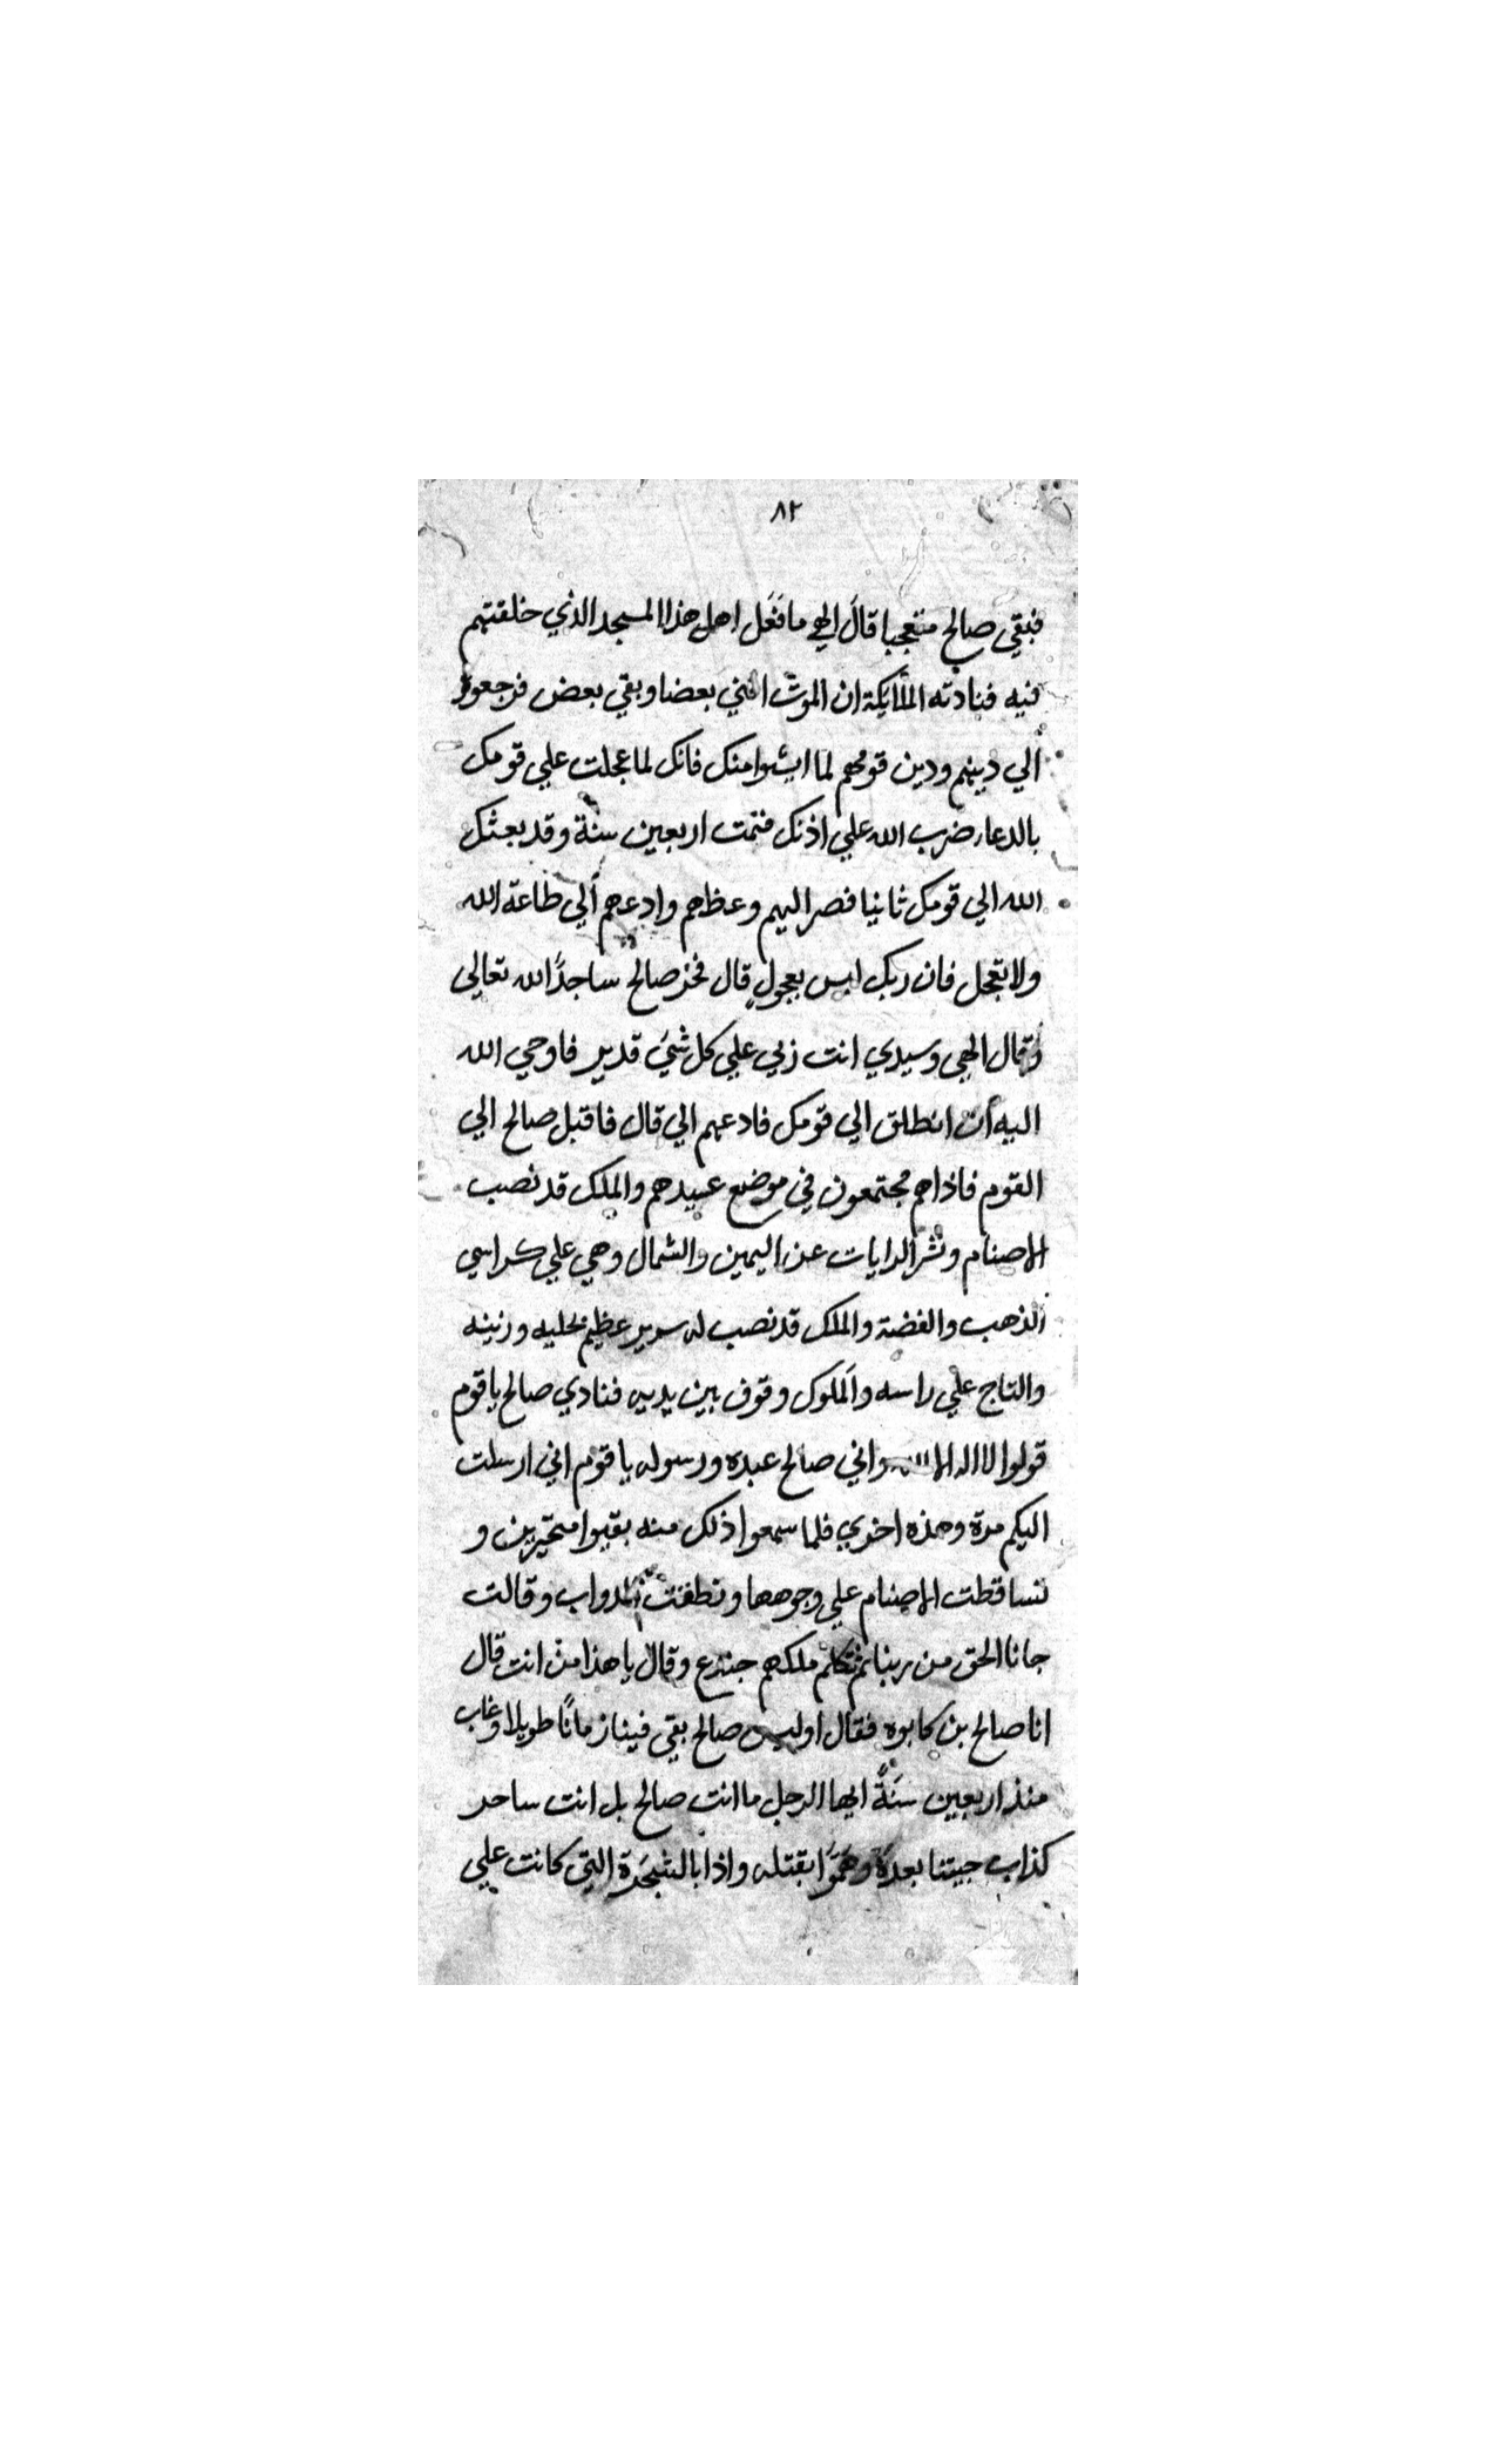 ٨٢
فبقي صالح متعجبا قالَ الهي ما فَعَل اهل هذا المسجد الذي خلفتهم
فيه فنادته الملايكة ان الموتَ افني بعضا وبقي بعض فرجعوا
الي دينهم ودين قومهم لما ايسوا منك فانك لما عجلت علي قومك
بالدعاء ضرب الله علي اذنك فنمت اربعين سنة وقد بعثك
الله الي قومك ثانيا فصر اليهم وعظهم وادعهم الي طاعة الله
ولا تعجل فان ربك ليس بعجولٍ قال فخر صالح ساجدًا لله تعالي
وقال الهي وسيدي انت ربي علي كل شيَ قدير فاوحي الله
اليه أن انطلق الي قومك فادعهم الي قال فاقبل صالح الي
القوم فاذاهم مجتمعون في موضع عيدهم والملك قد نصب
الاصنام ونشر الرايات عن اليمين والشمال وهي علي كراسي
الذهب والفضة والملك قد نصب له سرير عظيم بحليه وزينه
والتاج علي راسه والملوك وقوف بين يديه فنادي صالح ياقوم
قولوا لا اله الا الله واني صالح عبده ورسوله ياقوم اني ارسلت
اليكم مرة وهذه اخري فلما سمعوا ذلك منه بقيوا متحيرين و
تساقطت الاصنام علي وجوهها ونطقت الدواب وقالت
جانا الحق من ربنا ثم تكلم ملكهم جندع وقال يا هذا من انت قال
انا صالح بن كابوه فقال اوليس صالح بقي فينا زمانًا طويلا وغاب
منذ اربعين سَنَةً ايها الرجل ما انت صالح بل انت ساحر
كذاب جيتنا بعدهَ وهَمّوا بقتله واذا بالشجَرة التي كانت علي